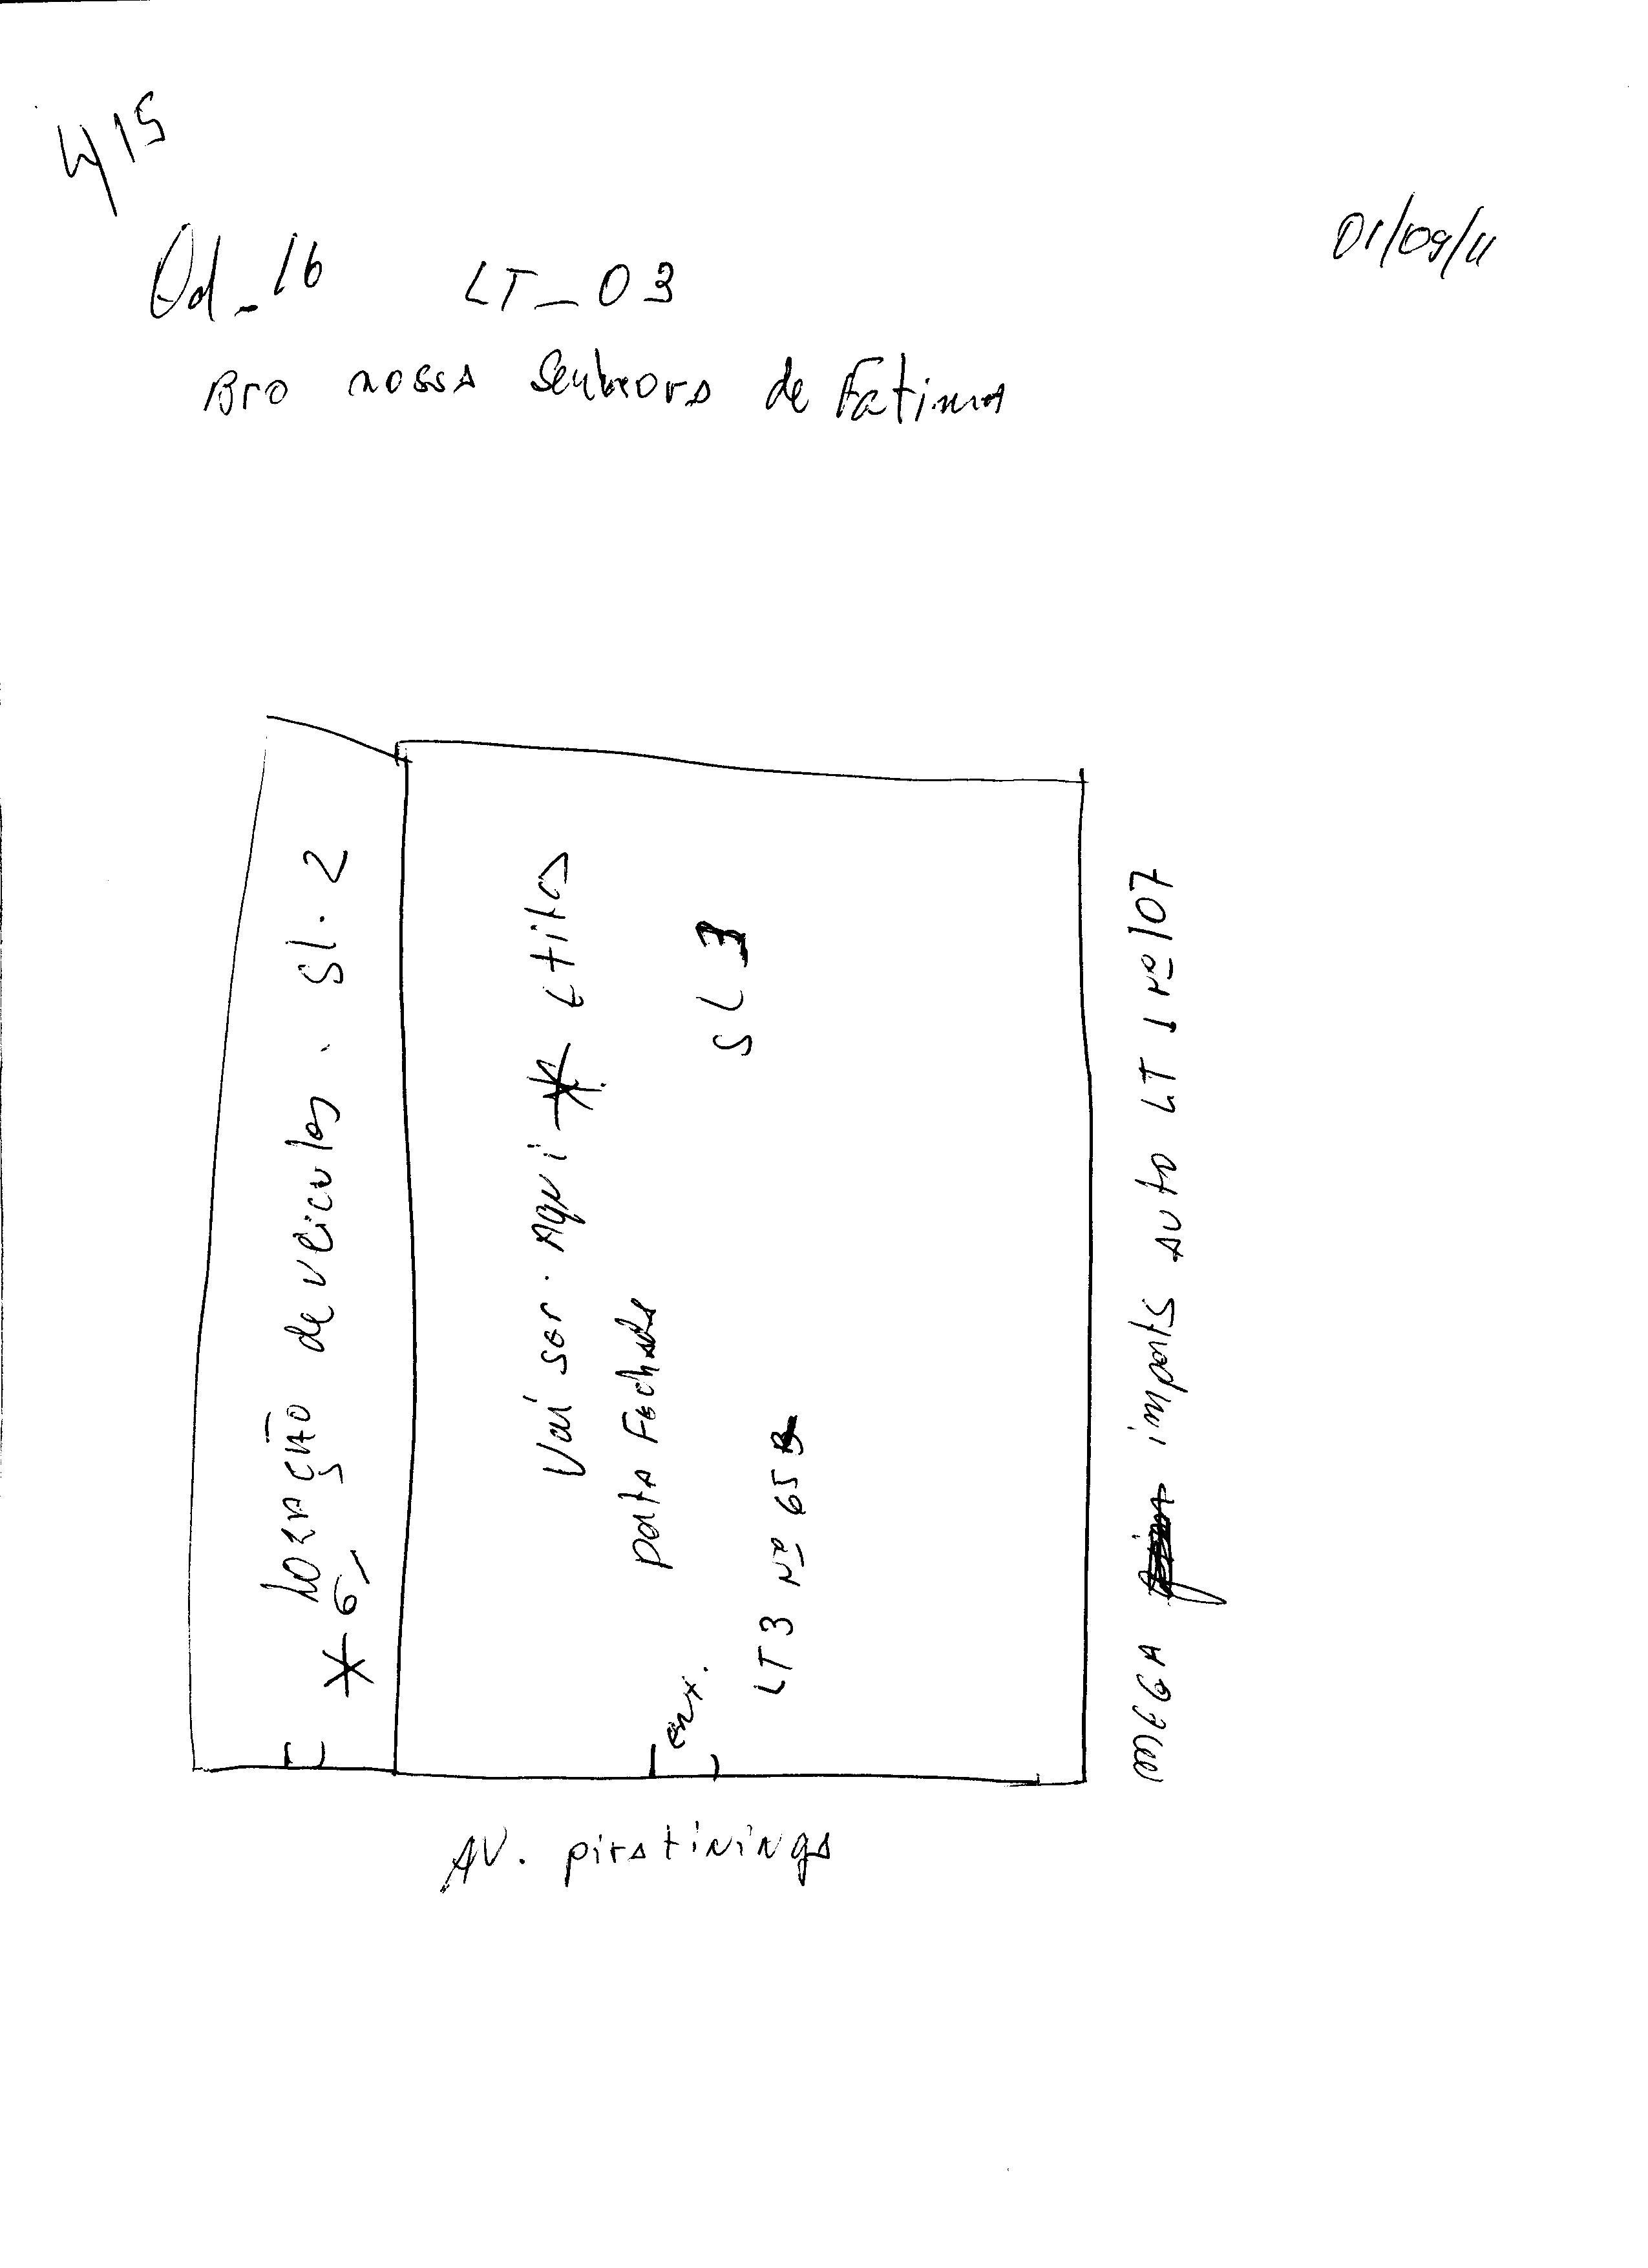 4/15
01/09/11
Qd_16 LT_03
Bro nossa Senhora de Fatima
Locação de veiculos. Sl. 2
Vai ser. Aqui
porta Fechada
SL 3
LT 3 Nº 65
ent.
MEGA imports Auto LT 1 Nº 107
AV. piratininga